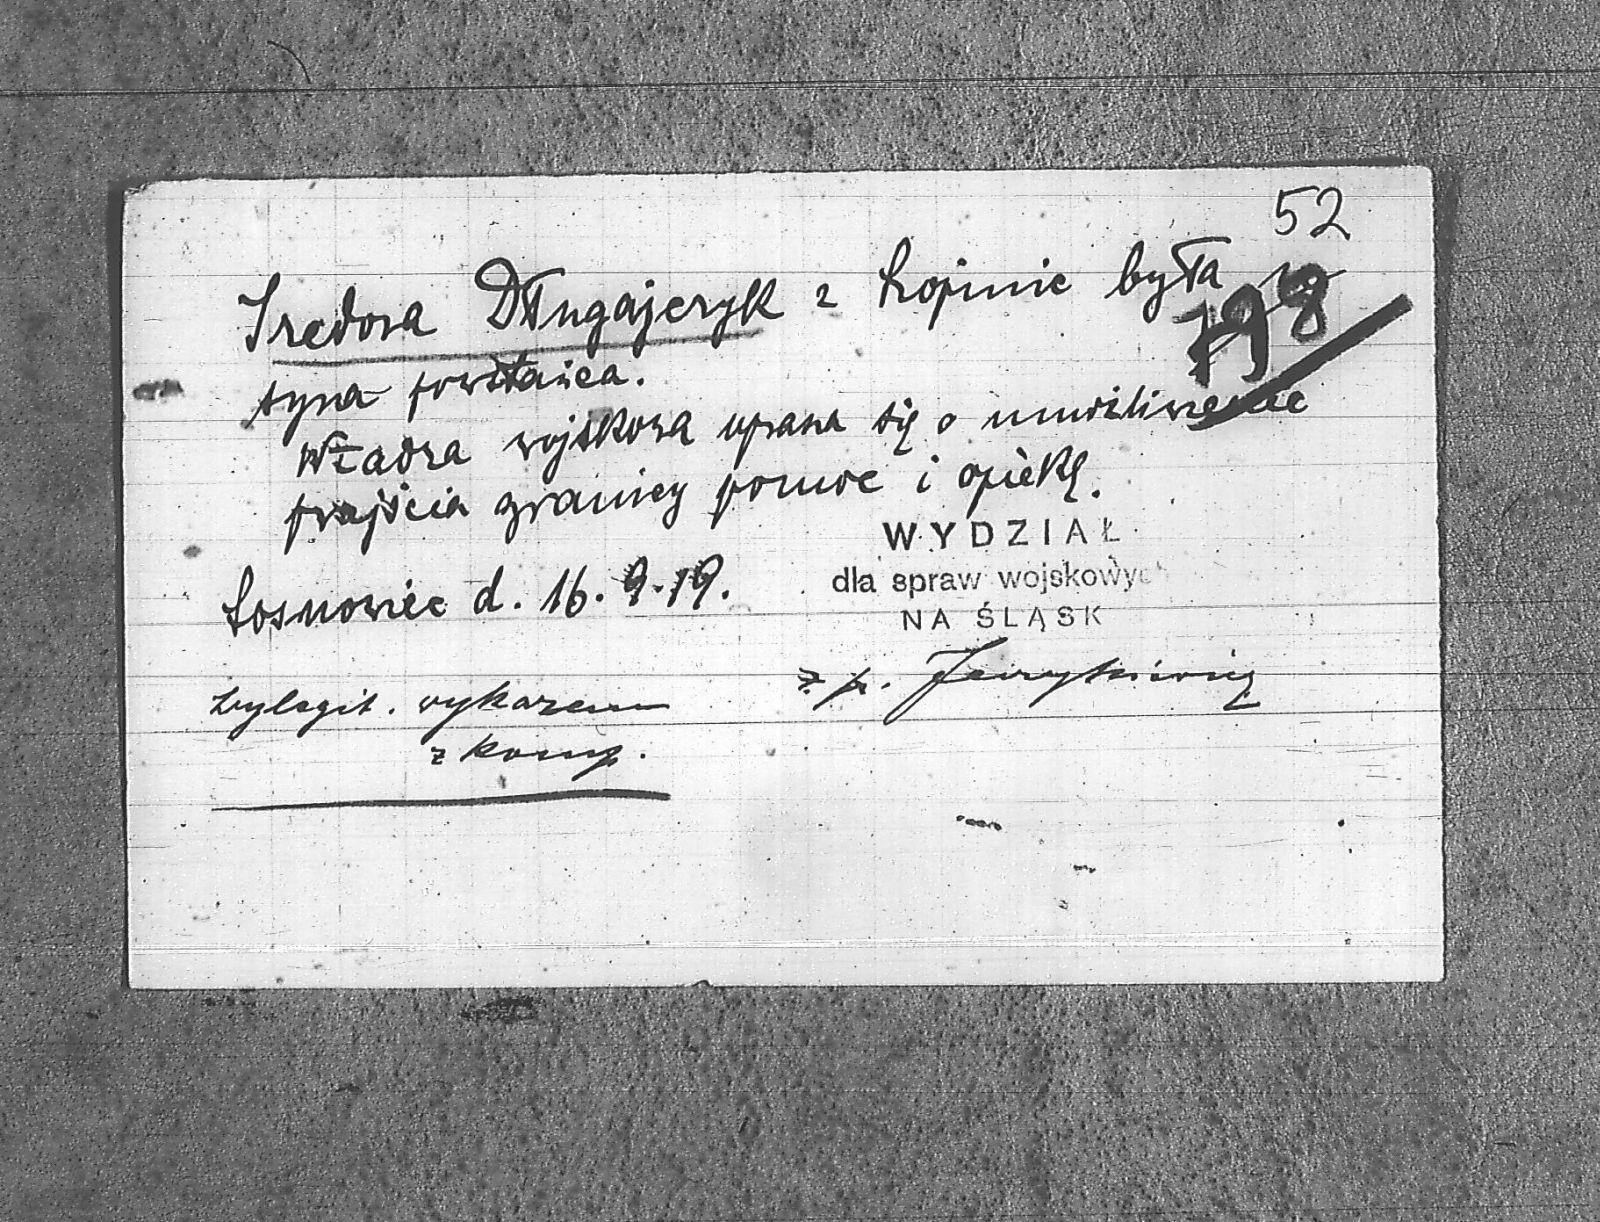 52
198
Izedora Długajczyk z Łopinie była u
syna powstańca.
Władza wojskowa uprasza się o umożliwienie
przejścia granicy pomoc i opiekę.
WYDZIAŁ
dla spraw wojskowych
NA ŚLĄSK
Sosnowiec d. 16.9.19.
z p.
wylegit. wykazem
z komp.